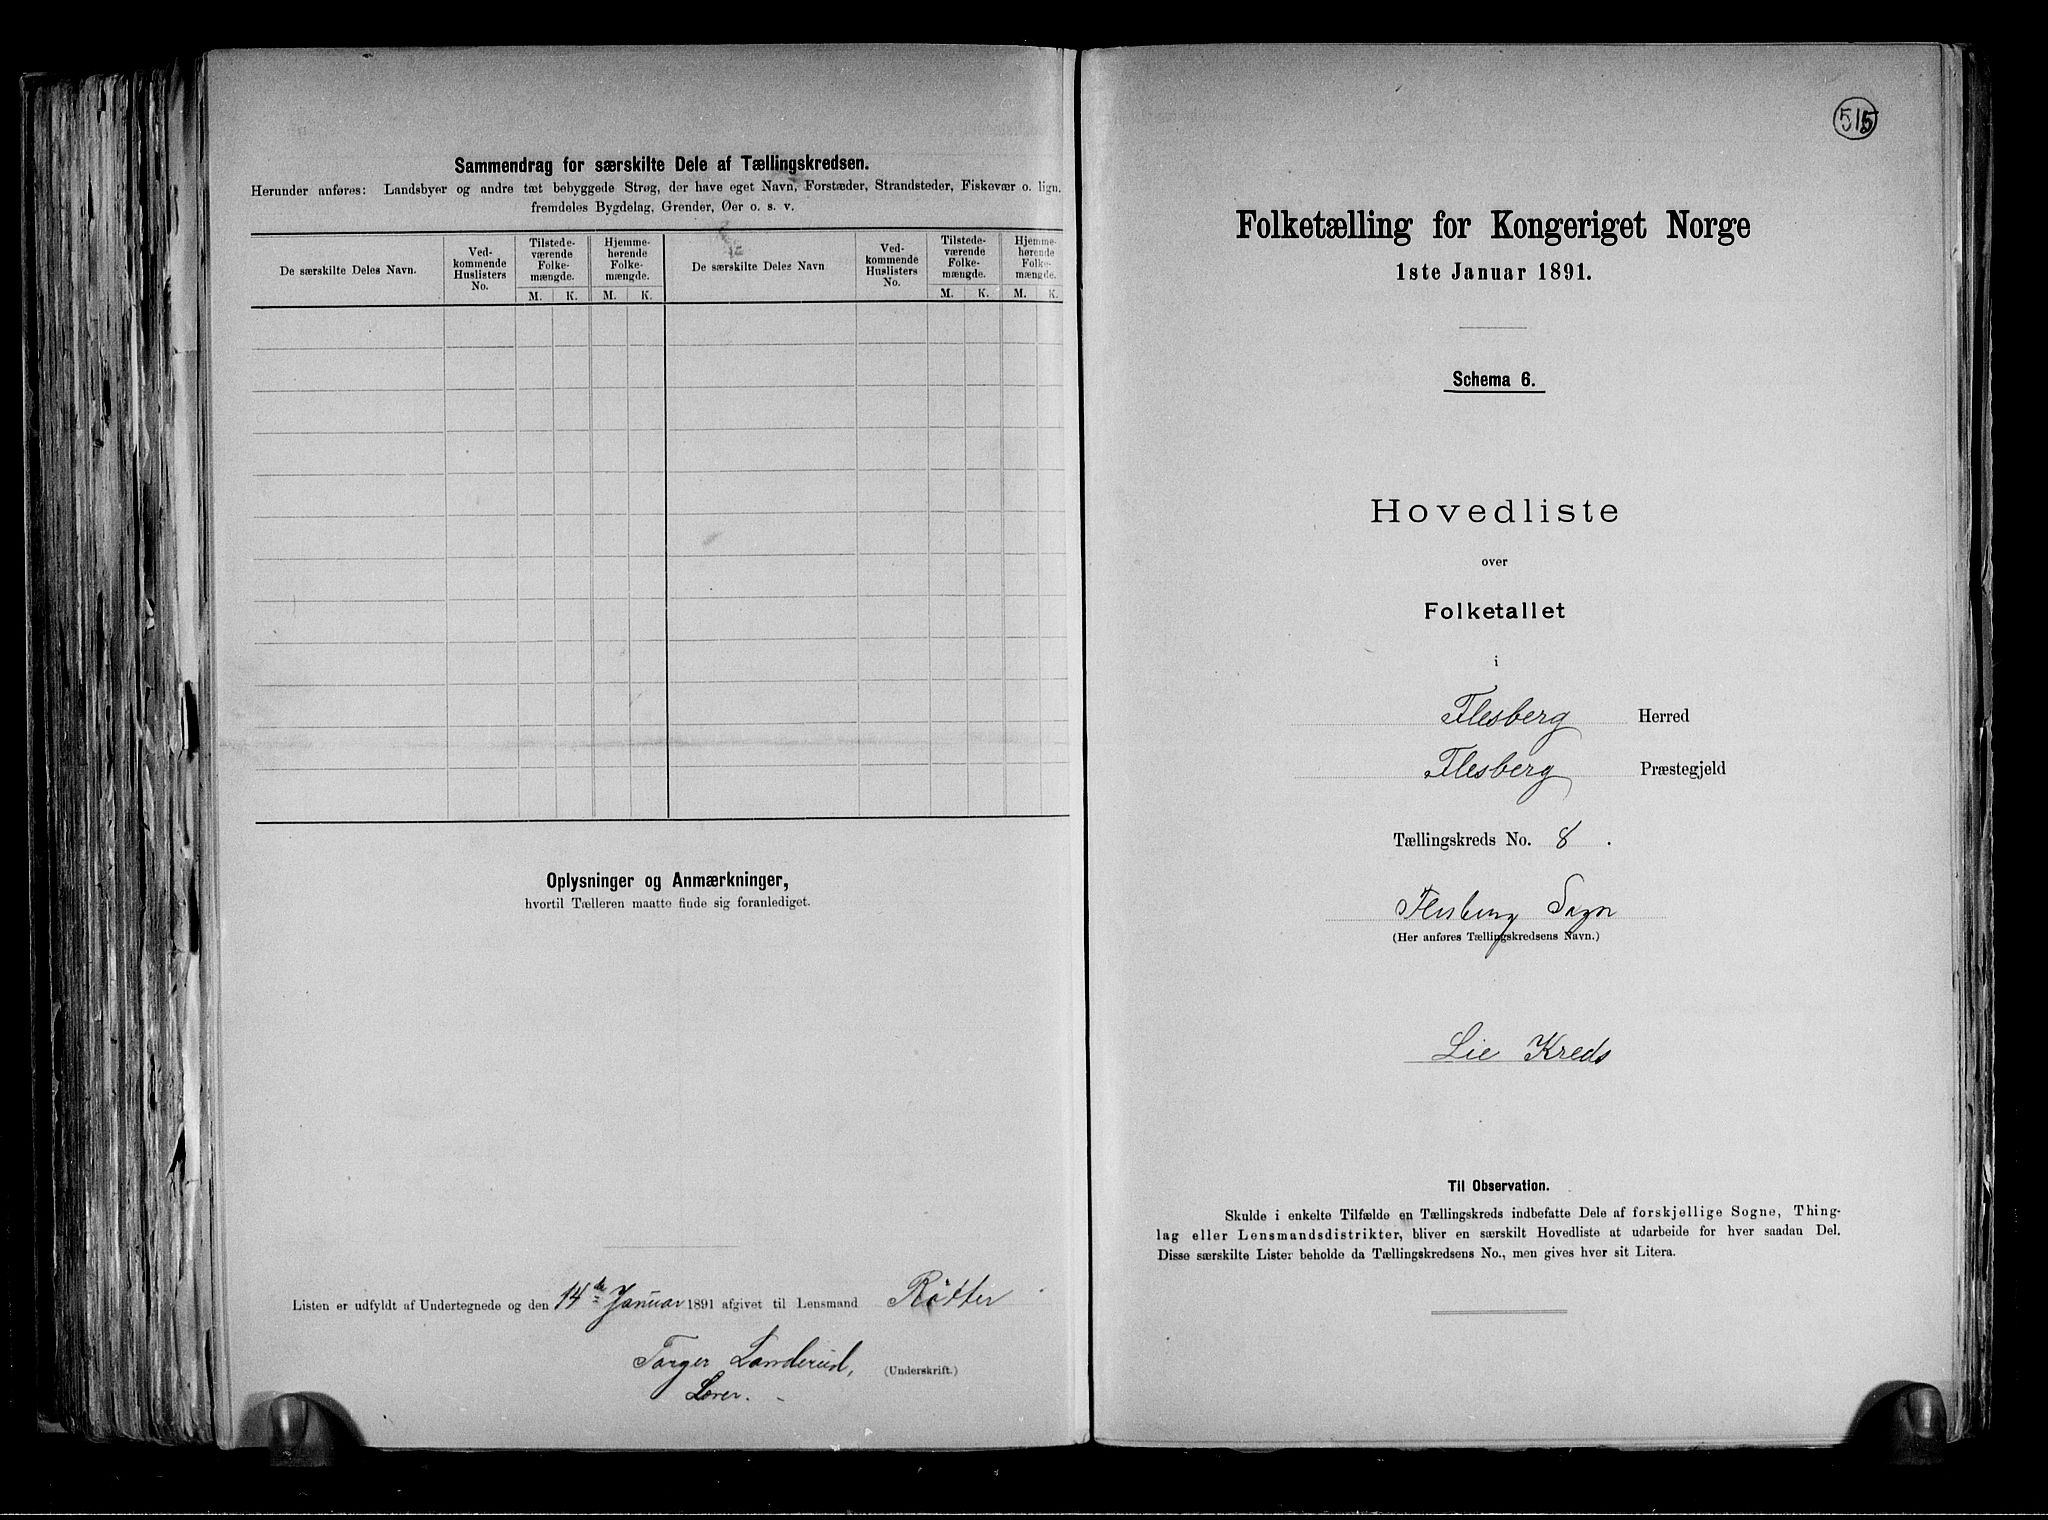 Sammendrag for særskilte Dele af Tællingskredsen.
Herunder anføres: Landsbyer og andre tæt bebyggede Strøg, der have eget Navn, Forstæder, Strandsteder, Fiskevær o. lign.
fremdeles Bygdelag, Grender, Øer o. s. v.
De særskilte Deles Navn.
Ved-
kommende
Huslisters
No.
Tilstede-
værende
Folke-
mængde.
M. K.
Hjemme-
hørende
Folke-
mængde.
M. K.
De særskilte Deles Navn
Ved-
kommende
Huslisters
No.
Tilstede-
værende
Folke-
mængde.
M. K.
Hjemme-
hørende
Folke-
mængde.
M. K.
Oplysninger og Anmærkninger,
hvortil Tælleren maatte finde sig foranlediget.
Listen er udfyldt af Undertegnede og den 14de Januar 1891 afgivet til Lensmand Råtter
Torger Landerud,
(Underskrift.)
Lærer.
515
Folketælling for Kongeriget Norge
1ste Januar 1891.
Schema 6.
Hovedliste
over
Folketallet
i
Flesberg Herred
Flesberg Præstegjeld
Tællingskreds No. 8.
Flesberg Sogn
(Her anføres Tællingskredsens Navn.)
Lie Kreds
Til Observation.
Skulde i enkelte Tilfælde en Tællingskreds indbefatte Dele af forskjellige Sogne, Thing-
lag eller Lensmandsdistrikter, bliver en særskilt Hovedliste at udarbeide for hver saadan Del.
Disse særskilte Lister beholde da Tællingskredsens No., men gives hver sit Litera.